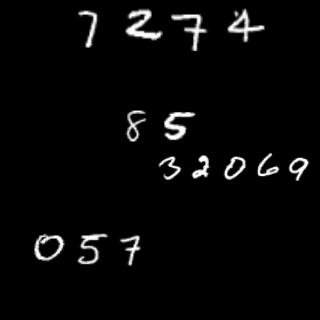 7274
85
32069
057